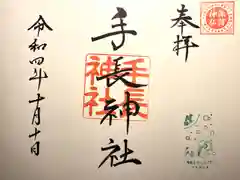 奉拝
手長神社
手長
神社
令和四年十月十日